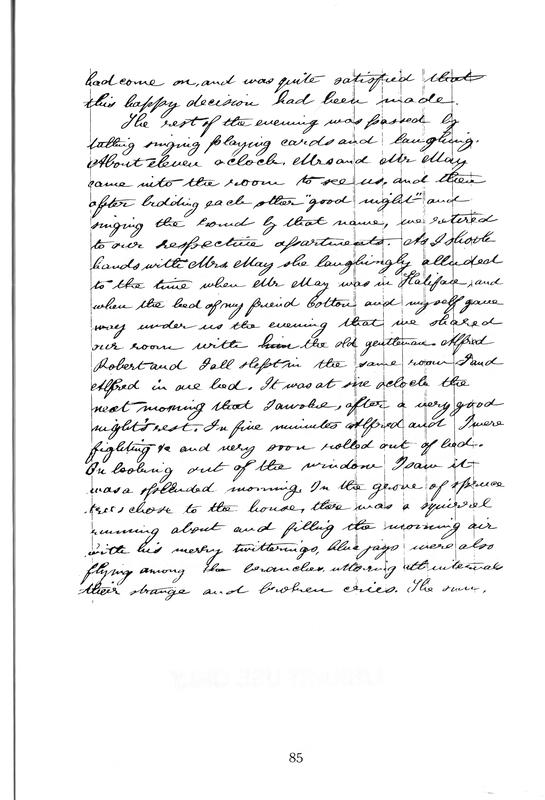 had come on, and was quite satisfied that
this happy decision had been made.
The rest of the evening was passed by
talking singing playing cards and laughing.
About eleven oclock, Mrs and Mr May
came into the room to see us, and then
after bidding each other "good night" and
singing the round by that name, we retired
to our respective apartments. As I shook
hands with Mrs May she laughingly alluded
to the time when Mr May was in Halifax, and
when the bed of my friend Cotton and myself gave
way under us the evening that we shared
our room with him the old gentleman. Alfred
Robert and I all slept in the same room I and
Alfred in one bed. It was at six oclock the
next morning that I awoke, after a very good
night's rest. In five minutes Alfred and I were
fighting &c and very soon rolled out of bed.
On looking out of the window I saw it
was a splended morning. In the grove of spruce
trees close to the house, there was a squirrel
running about and filling the morning air
with his merry twitterings, blue jays were also
flying among the branches uttering at intervals
their strange and broken cries. The sun,
85